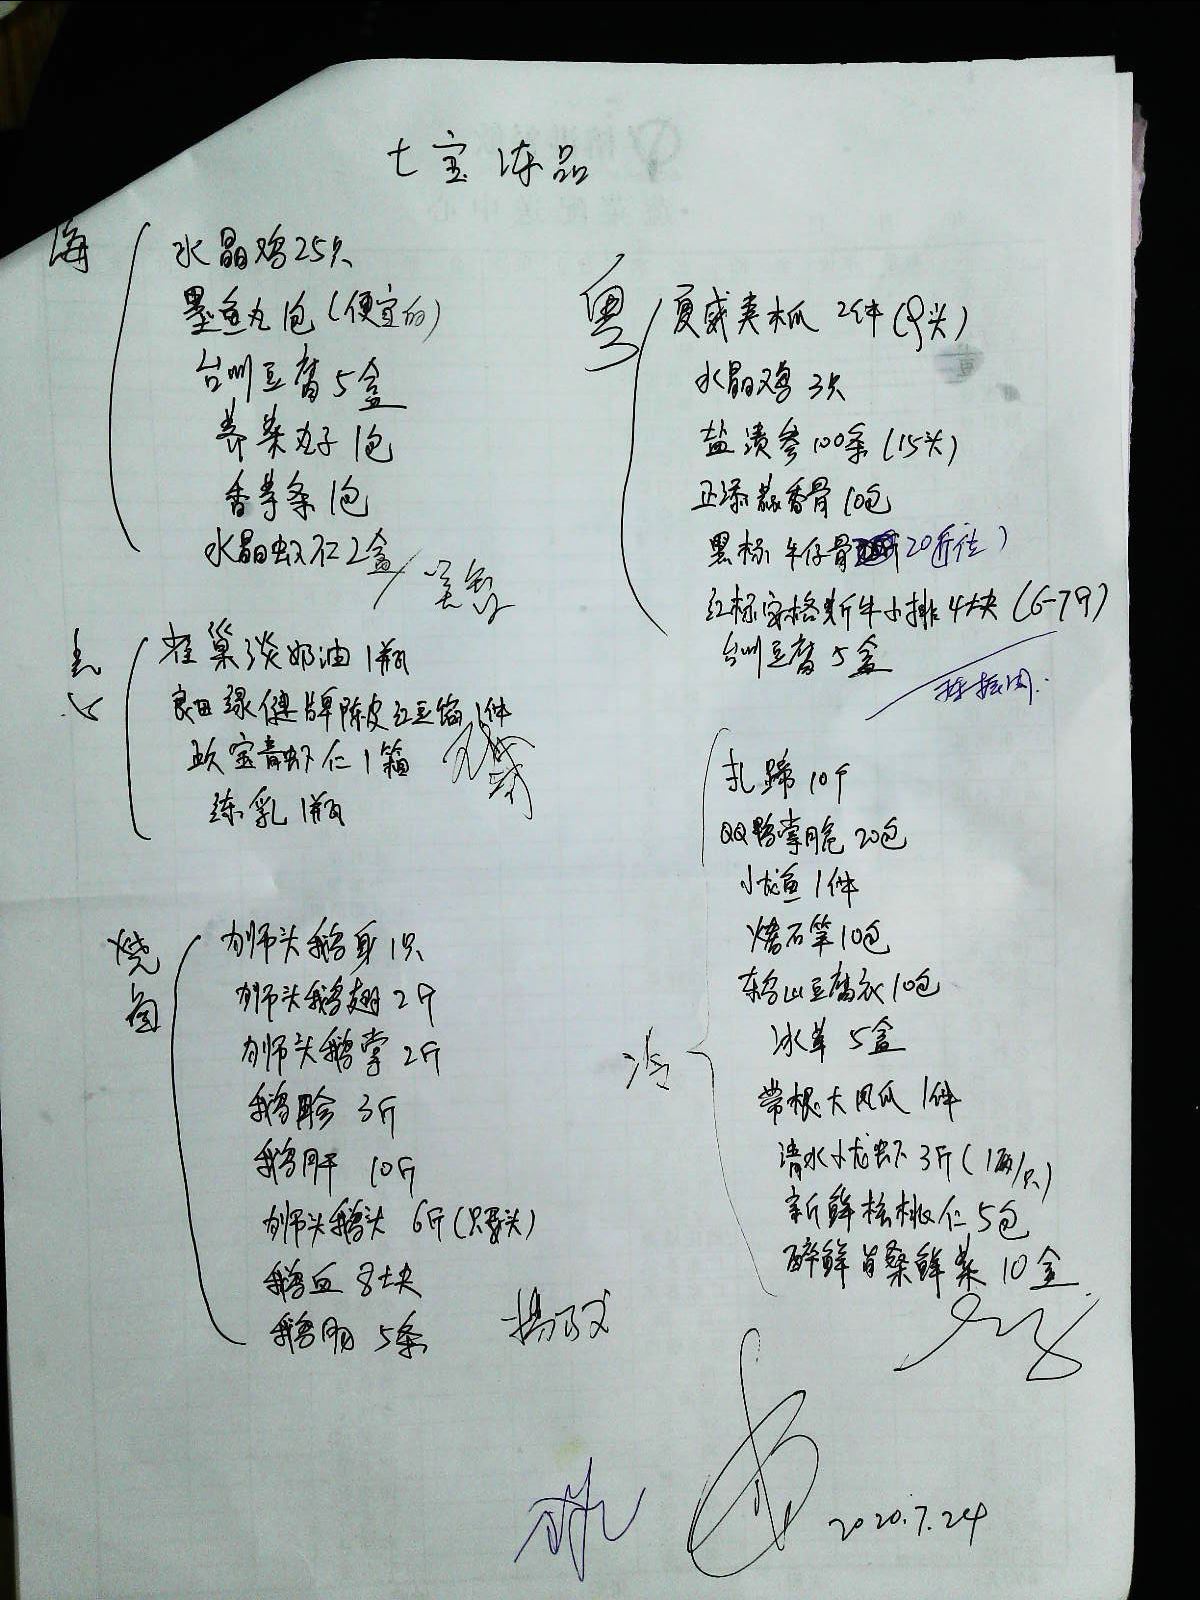 七宝冻品
海
水晶鸡25只
墨鱼丸1包(便宜的)
台州豆腐5盒
荠菜丸子1包
香芋条1包
水晶虾仁2盒
点心
雀巢淡奶油1瓶
良田绿健牌陈皮红豆馅1件
玖宝青虾仁1箱
练乳1瓶
烧卤
狮头鹅身1只
狮头鹅翅2斤
狮头鹅掌2斤
鹅胗3斤
鹅肝10斤
狮头鹅头6斤(只要头)
鹅血8大块
鹅肠5条
粤
夏威夷木瓜2件(9头)
水晶鸡3只
盐渍参100条(15头)
正添蒜香骨10包
黑标牛仔骨20斤
红标安格斯牛小排4大块(6-79)
台州豆腐5盒
冷
扎蹄10斤
QQ鸭掌脆20包
小龙鱼1件
烤石笋10包
东台山豆腐衣10包
冰草5盒
带根大凤爪1件
清水小龙虾3斤(1两/只)
新鲜核桃仁5包
醉鲜皇桑鲜菜10盒
2020.7.24